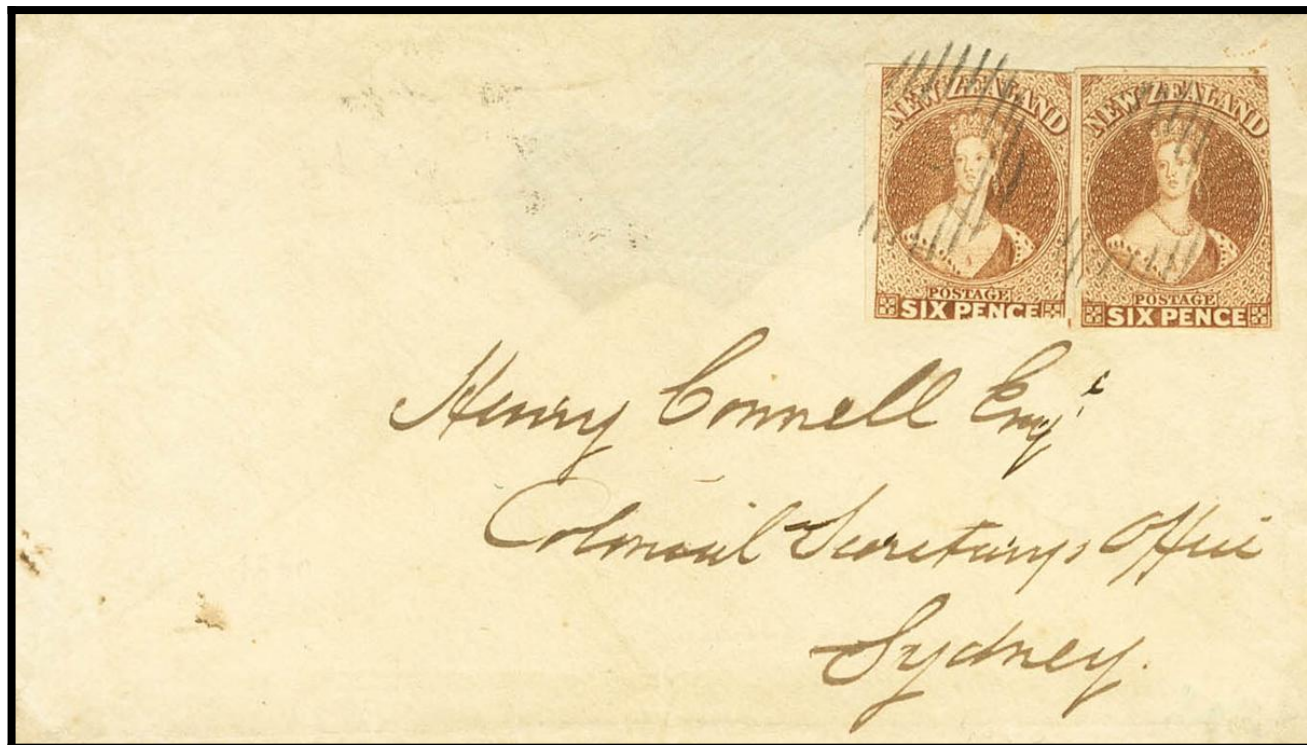 NEW ZEALAND
POSTAGE
SIX PENCE
NEW ZEALAND
POSTAGE
SIX PENCE
Henry Connell Esqr
Colonial Secretarys Office
Sydney.